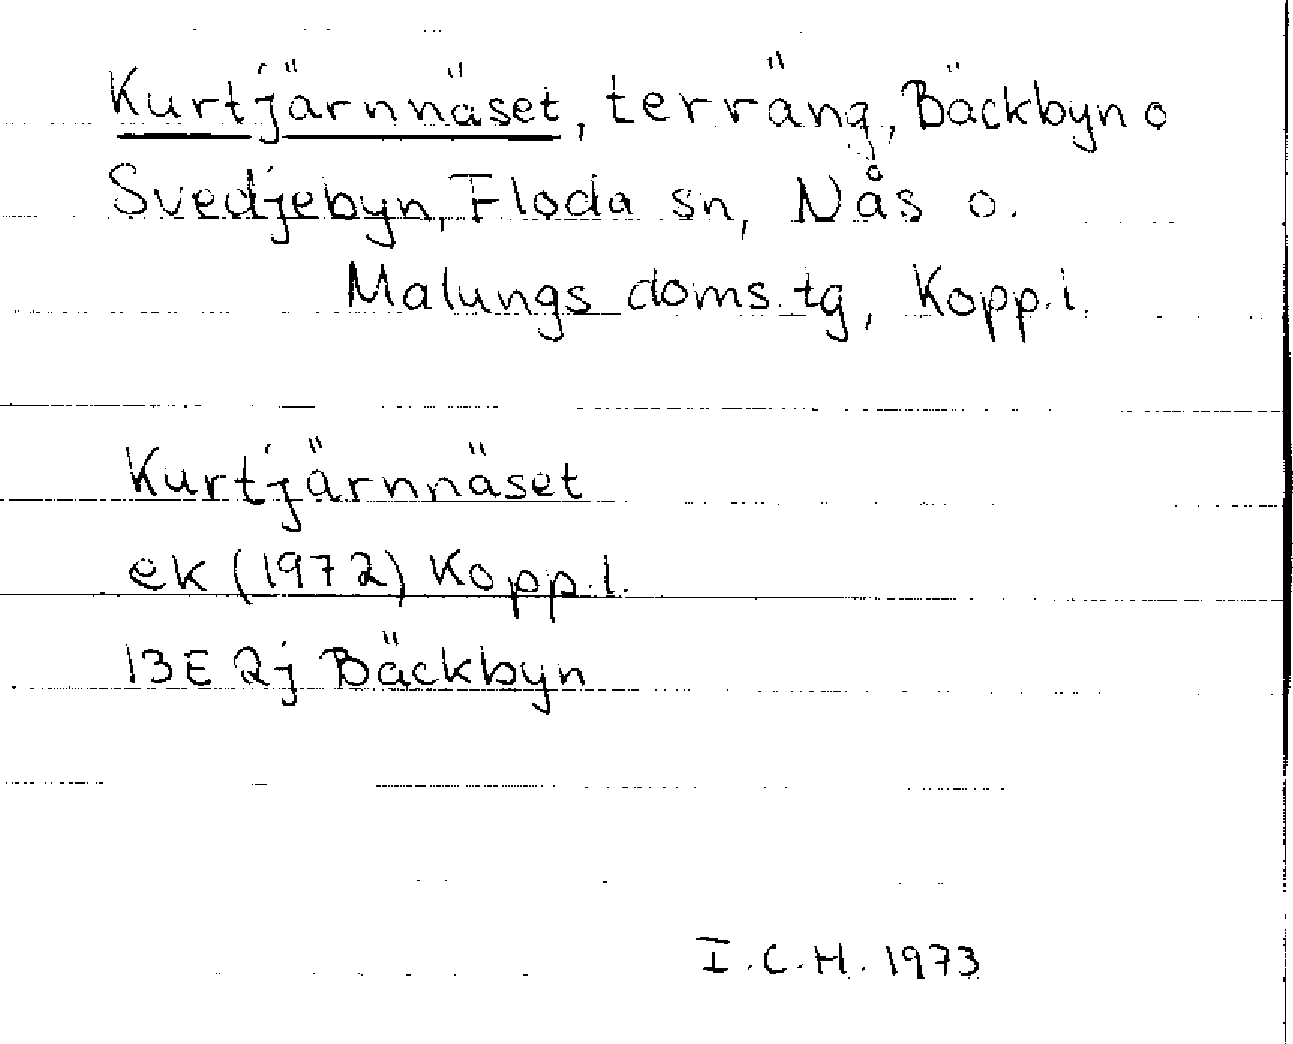 Kurtjärnnäset, terräng, Bäckbyn o
Svedjebyn, Floda sn, Nås o.
Malungs doms.tg, Kopp.l.
Kurtjärnnäset
ek (1972) Kopp.l.
13E 2j Bäckbyn
I.C.H. 1973